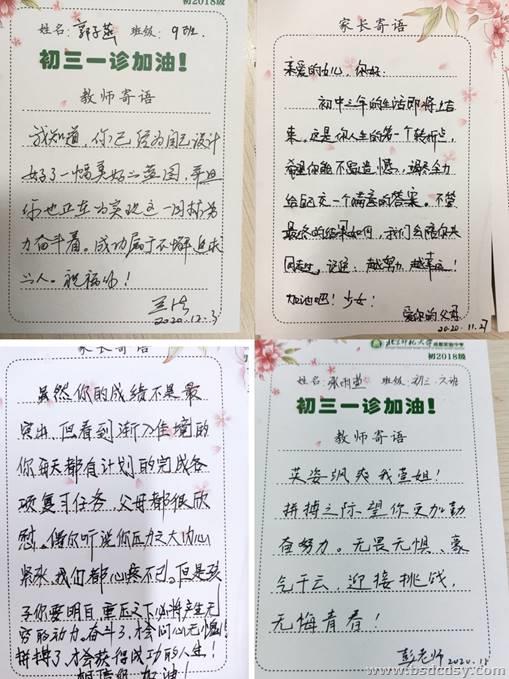 初2018级
姓名: 郭子燕 班级: 9班.
初三一诊加油！
教师寄语
我知道，你已经为自己设计
好了一幅美好的蓝图，并且
你也正在为实现这一目标努
力奋斗着。成功属于不懈追求
的人。祝福你！
2020.12.3
家长寄语
亲爱的女儿，你好:
初中三年的生活即将上结
束，这是你人生的第一个转折点，
希望你能不留遗憾，竭尽全力
给自己交一个满意的答案。不管
最终的结果如何，我们会陪你共
同走过，记住：越努力，越幸运！
加油吧！少女！
爱你的父母
2020.11.27
家长寄语
虽然你的成绩不是最
突出，但看到渐入佳境的
你每天都有计划的完成各
项复习任务，父母都很欣
慰。偶尔听说你压力太大内心
紧张，我们都心疼不已。但是孩
子你要明白，重压之下必将产生无
穷的动力。奋斗了，才会问心无愧！
拼搏了，才会获得成功的人生！
加油！
北京师范大学
成都实验中学
初2018级
姓名: 班级: 初三.九班
初三一诊加油！
教师寄语
英姿飒爽我萱姐！
拼搏之际，望你更加勤
奋努力。无畏无惧、豪
气干云，迎接挑战，
无悔青春！
彭老师 2020.12
www.bsdcdsy.com